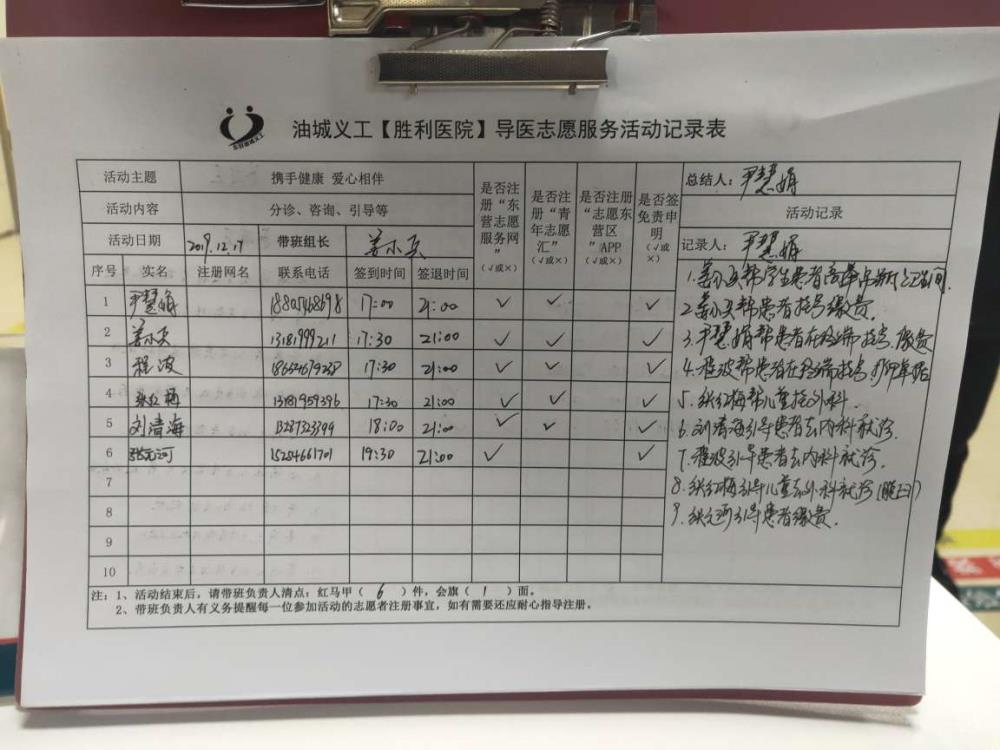 油城义工【胜利医院】导医志愿服务活动记录表
活动主题 携手健康 爱心相伴
活动内容 分诊、咨询、引导等
活动日期 2019.12.17 带班组长 姜小兵
是否注册“东营志愿服务网”(√或×)
是否注册“青年志愿汇”(√或×)
是否注册“志愿东营区”APP(√或×)
是否签免责申明(√或×)
总结人：尹慧娟
活动记录
记录人：尹慧娟
序号 实名 注册网名 联系电话 签到时间 签退时间
1 尹慧娟 17:00 21:00 √ √ √
2 姜小兵 13181999211 17:30 21:00 √ √ √
3 程波 17:30 21:00 √ √ √
4 13181959396 17:30 21:00 √ √ √
5 刘清海 13287323399 18:00 21:00 √ √ √
6 张元河 15284661701 19:30 21:00 √ √
7
8
9
10
2.姜小兵帮患者挂号缴费.
3.尹慧娟帮患者在终端挂号.缴费
4.程波帮患者在终端挂号.
5.张红梅帮儿童挂外科.
6.刘清海引导患者去内科就诊.
7.程波引导患者去内科就诊.
8.张红梅引导儿童去外科就诊
9.张元河引导患者缴费.
注：1、活动结束后，请带班负责人清点：红马甲（ 6 ）件，会旗（ 1 ）面。
2、带班负责人有义务提醒每一位参加活动的志愿者注册事宜，如有需要还应耐心指导注册。